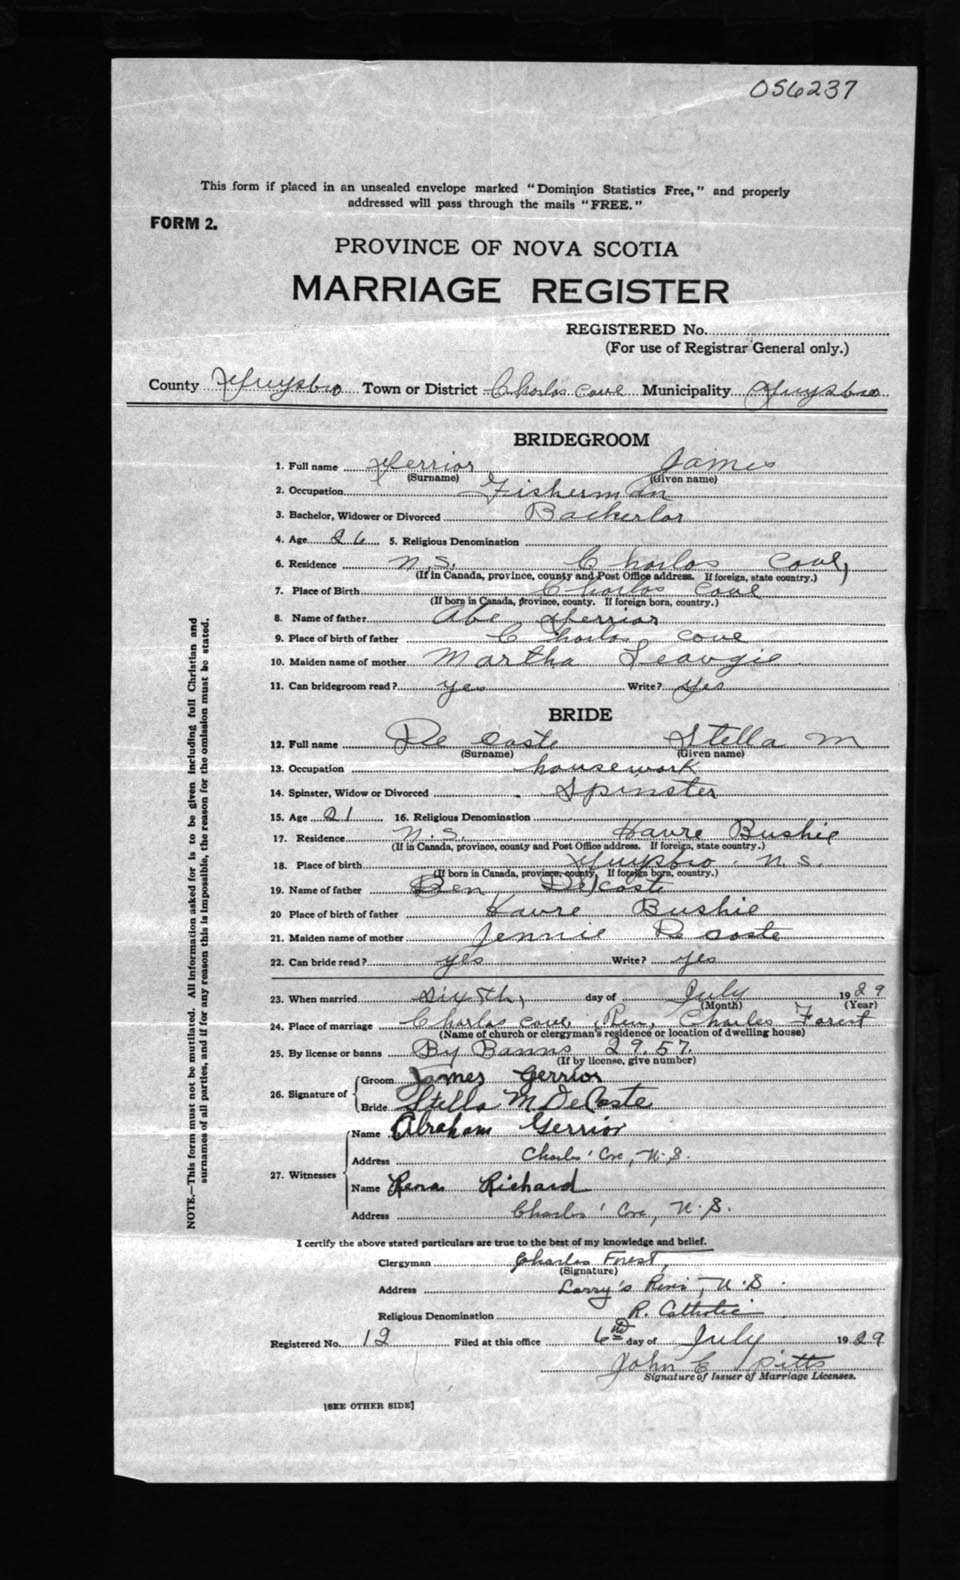 056237
This form if placed in an unsealed envelope marked "Dominion Statistics Free," and properly
addressed will pass through the mails "FREE."
FORM 2.
PROVINCE OF NOVA SCOTIA
MARRIAGE REGISTER
REGISTERED No.
(For use of Registrar General only.)
County Guysbro Town or District Charlos Cove Municipality Guysbro
BRIDEGROOM
1. Full name Gerrior James
(Surname) (Given name)
2. Occupation Fisherman
3. Bachelor, Widower or Divorced Backerlor
4. Age 26 5. Religious Denomination
6. Residence N.S. Charlos Cove,
(If in Canada, province, county and Post Office address. If foreign, state country.)
7. Place of Birth Charlos Cove
(If born in Canada, province, county. If foreign born, country.)
8. Name of father Abe Gerrior
9. Place of birth of father Charlos Cove
10. Maiden name of mother Martha
11. Can bridegroom read? yes Write? yes
BRIDE
12. Full name De Coste Stella M
(Surname) (Given name)
13. Occupation housework
14. Spinster, Widow or Divorced Spinster
15. Age 21 16. Religious Denomination
17. Residence N.S. Havre Bushie
(If in Canada, province, county and Post Office address. If foreign, state country.)
18. Place of birth Guysbro. N.S.
(If born in Canada, province, county. If foreign born, country.)
19. Name of father Ben DeCoste
20 Place of birth of father Havre Bushie
21. Maiden name of mother Jennie De Coste
22. Can bride read? yes Write? yes
23. When married sixth, day of July 1929
(Month) (Year)
24. Place of marriage Charlos Cove, Rev, Charles Forest
(Name of church or clergyman's residence or location of dwelling house)
25. By license or banns By Banns 29.57.
(If by license, give number)
26. Signature of Groom James Gerrior
Bride Stella M DeCoste
27. Witnesses Name Abraham Gerrior
Address Charlos' Cove, N.S.
Name Rena Richard
Address Charlos' Cove, N.S.
I certify the above stated particulars are true to the best of my knowledge and belief.
Clergyman Charles Forest,
(Signature)
Address Larry's River, N.S.
Religious Denomination R. Catholic
Registered No. 12 Filed at this office 6th day of July 1929
John C Pitts
Signature of Issuer of Marriage Licenses.
[SEE OTHER SIDE]
NOTE.—This form must not be mutilated. All information asked for is to be given including full Christian and
surnames of all parties, and if for any reason this is impossible, the reason for the omission must be stated.